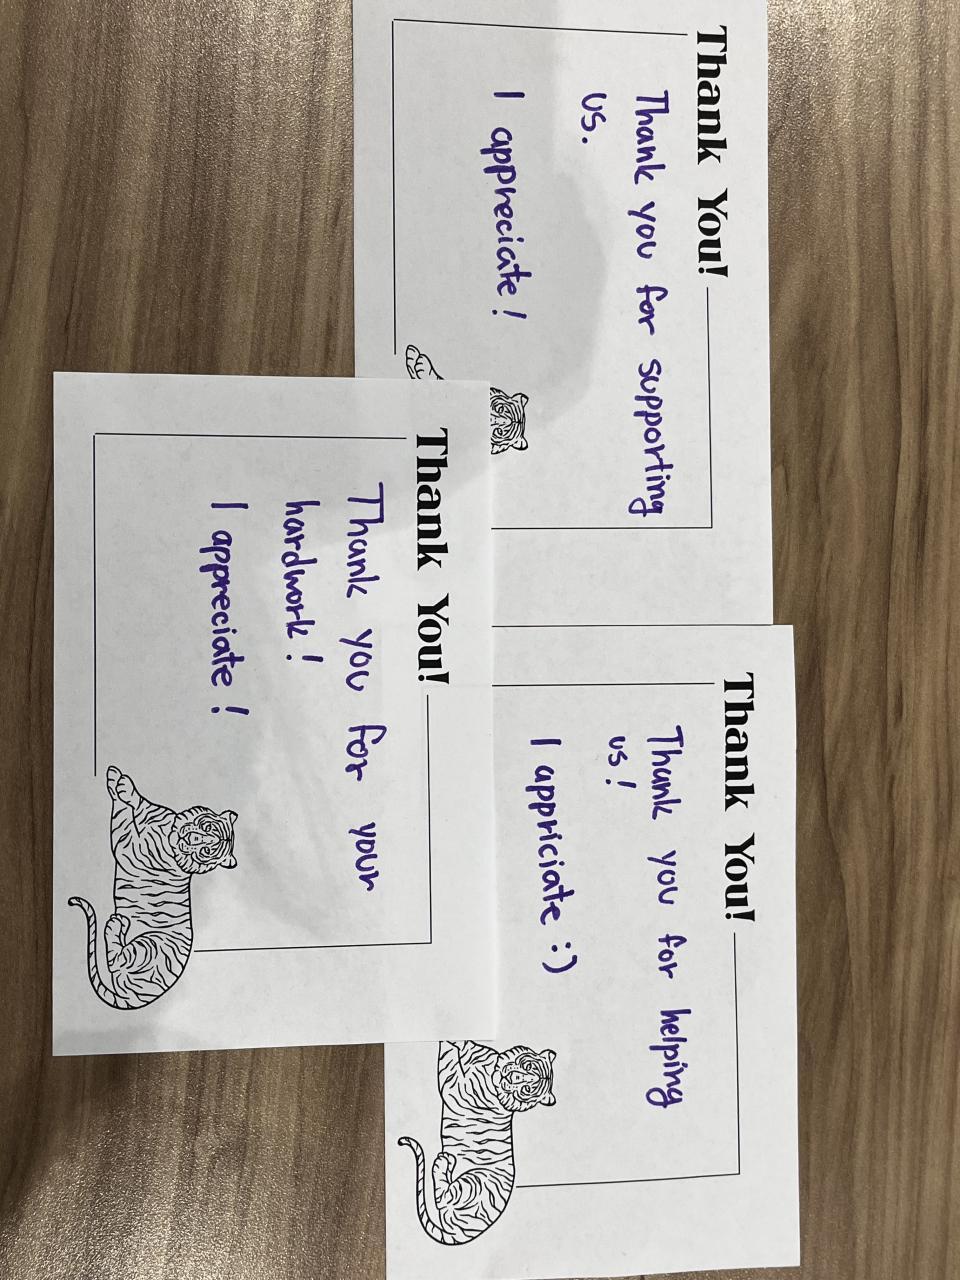 Thank You!
Thank you for supporting
us.
I appreciate!
Thank You!
Thank you for your
hardwork!
I appreciate!
Thank You!
Thank you for helping
us!
I appriciate :)